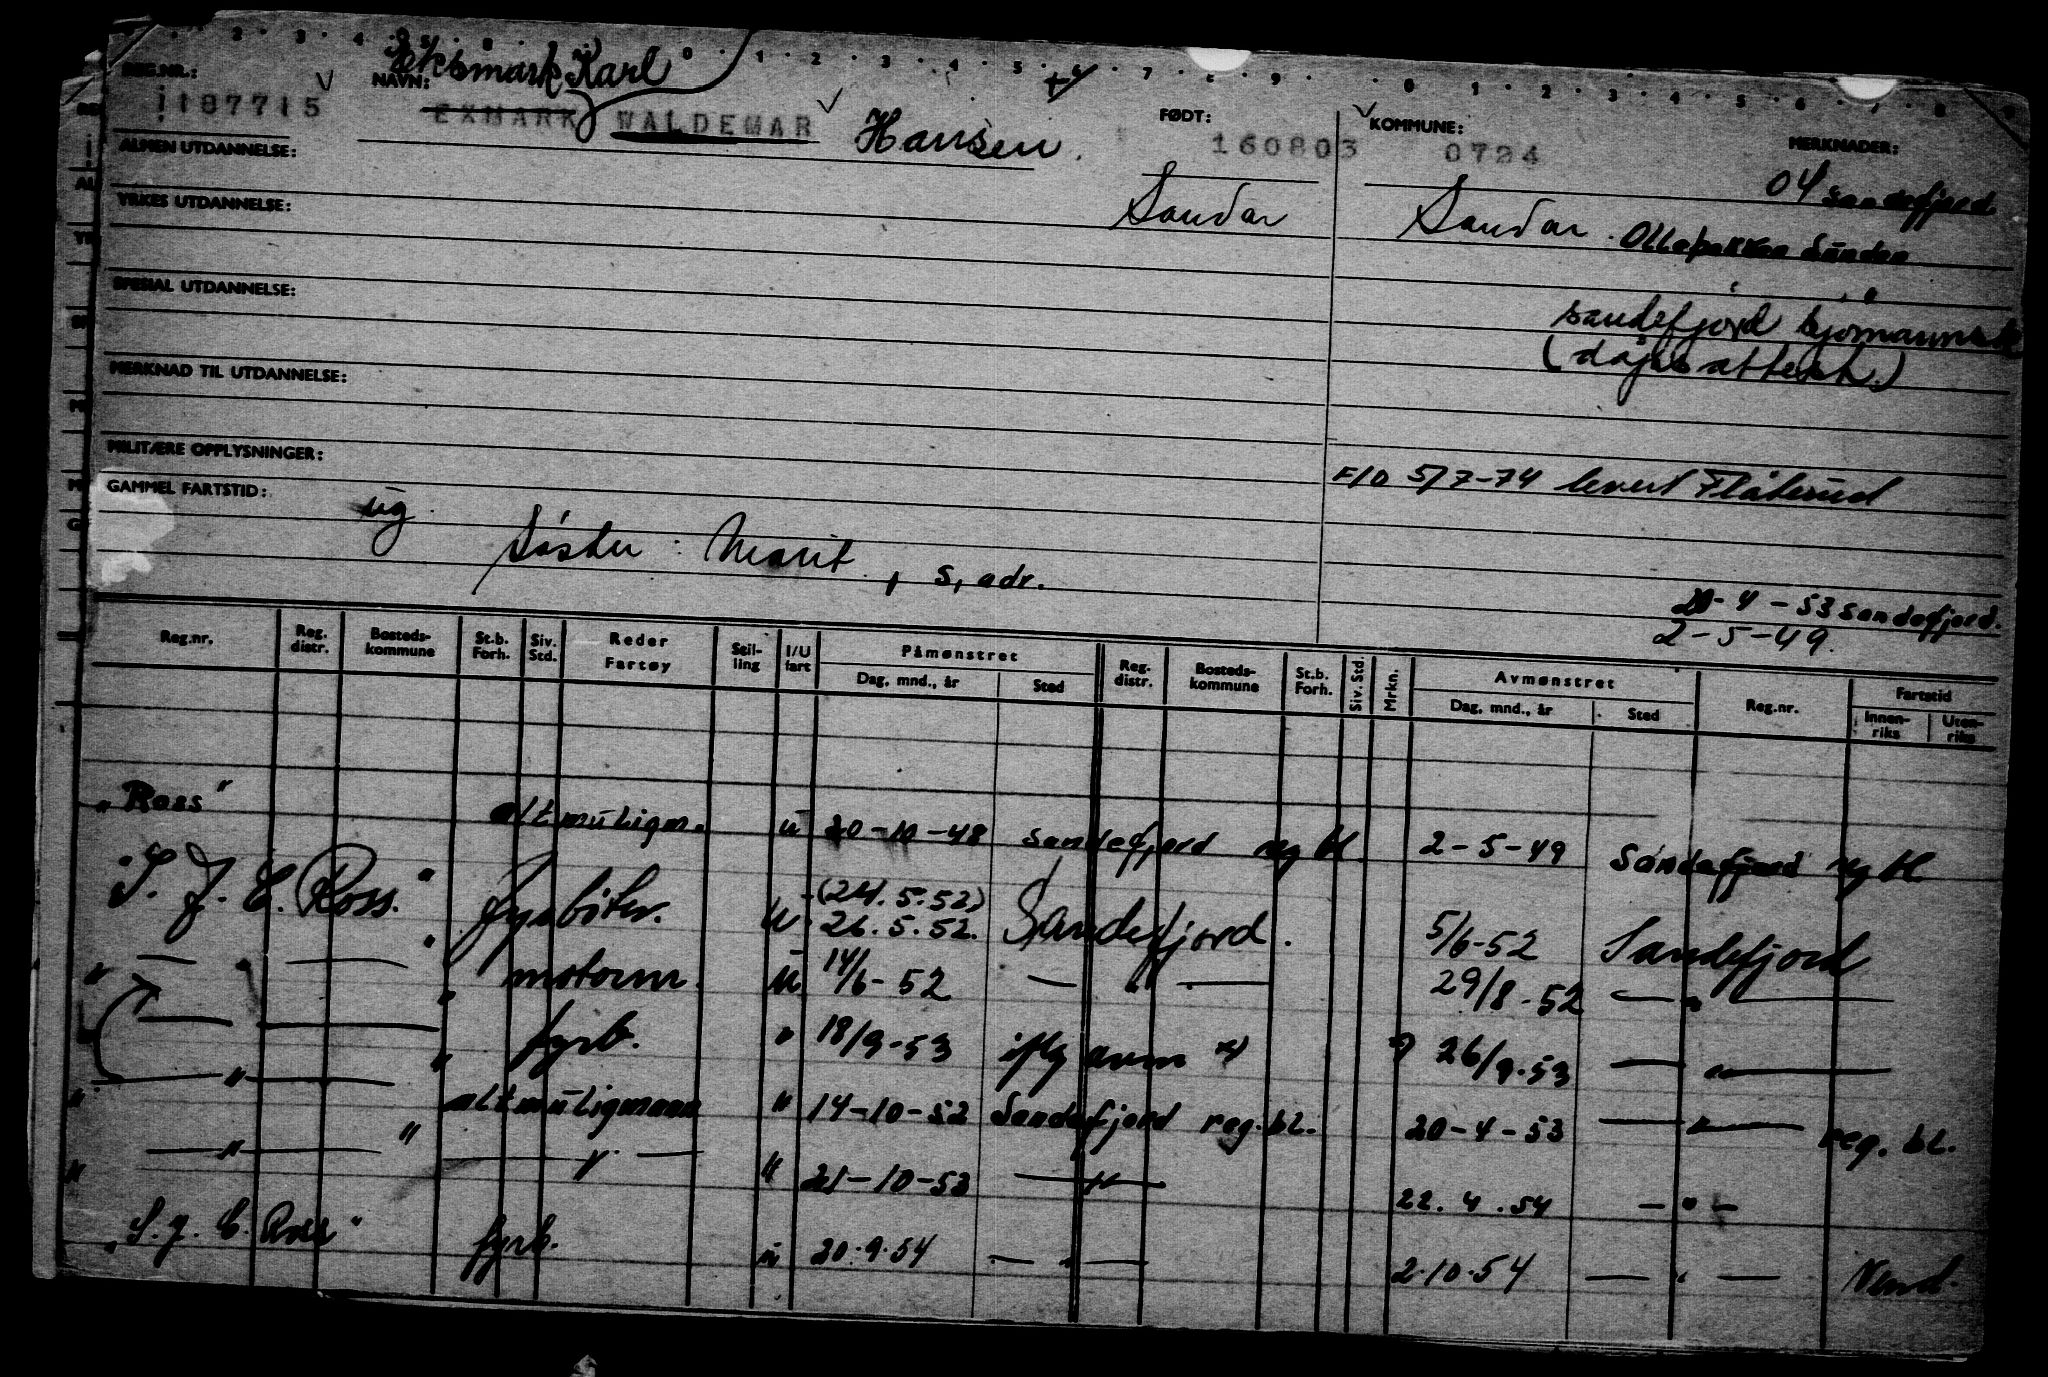 REG.NR.: NAVN: Eksmark Karl FØDT: KOMMUNE: MERKNADER:
1187715 EXMARK WALDEMAR Hansen 160803 0724
04 Sandefjord
ALMEN UTDANNELSE:
Sandar Sandar. Ollebakken Sanden
YRKES UTDANNELSE:
SPESIAL UTDANNELSE:
sandefjord sjømannsk
(døpsattest.)
MERKNAD TIL UTDANNELSE:
MILITÆRE OPPLYSNINGER:
F/O 5/7-74 levert Flåterud
GAMMEL FARTSTID: ug.
Søster: Marit, s, adr.
20-4-53 sandefjord.
2-5-49.
Reg.nr. Reg. distr. Bosteds-kommune St.b. Forh. Siv. Std. Reder Fartøy Stil-ling I/U fart Påmønstret Dag, mnd., år Sted Reg. distr. Bosteds-kommune St.b. Forh. Siv. Std. Mrkn. Avmønstret Dag, mnd., år Sted Reg.nr. Fartstid Innen-riks Uten-riks
"Ross" altmuligm. u 20-10-48 Sandefjord reg bl. 2-5-49 Sandefjord reg bl.
"S. J. E. Ross." fyrbøter. u (24.5.52) 26.5.52. Sandefjord. 5/6-52 Sandefjord
" — " — " motorm. u 14/6-52 — " — 29/8-52 — " —
" — — " fyrb. " 18/9-53 iflg avm 26/9-53 — " —
" — " — " altmuligmann " 14-10-52 Sandefjord reg.bl. 20-4-53 — " — reg. bl.
" — " — " — " — " 21-10-53 — " — 22.4.54 — " —
"S. J. E. Ross" fyrb. u 20.9.54 — " — 2.10.54 — " —